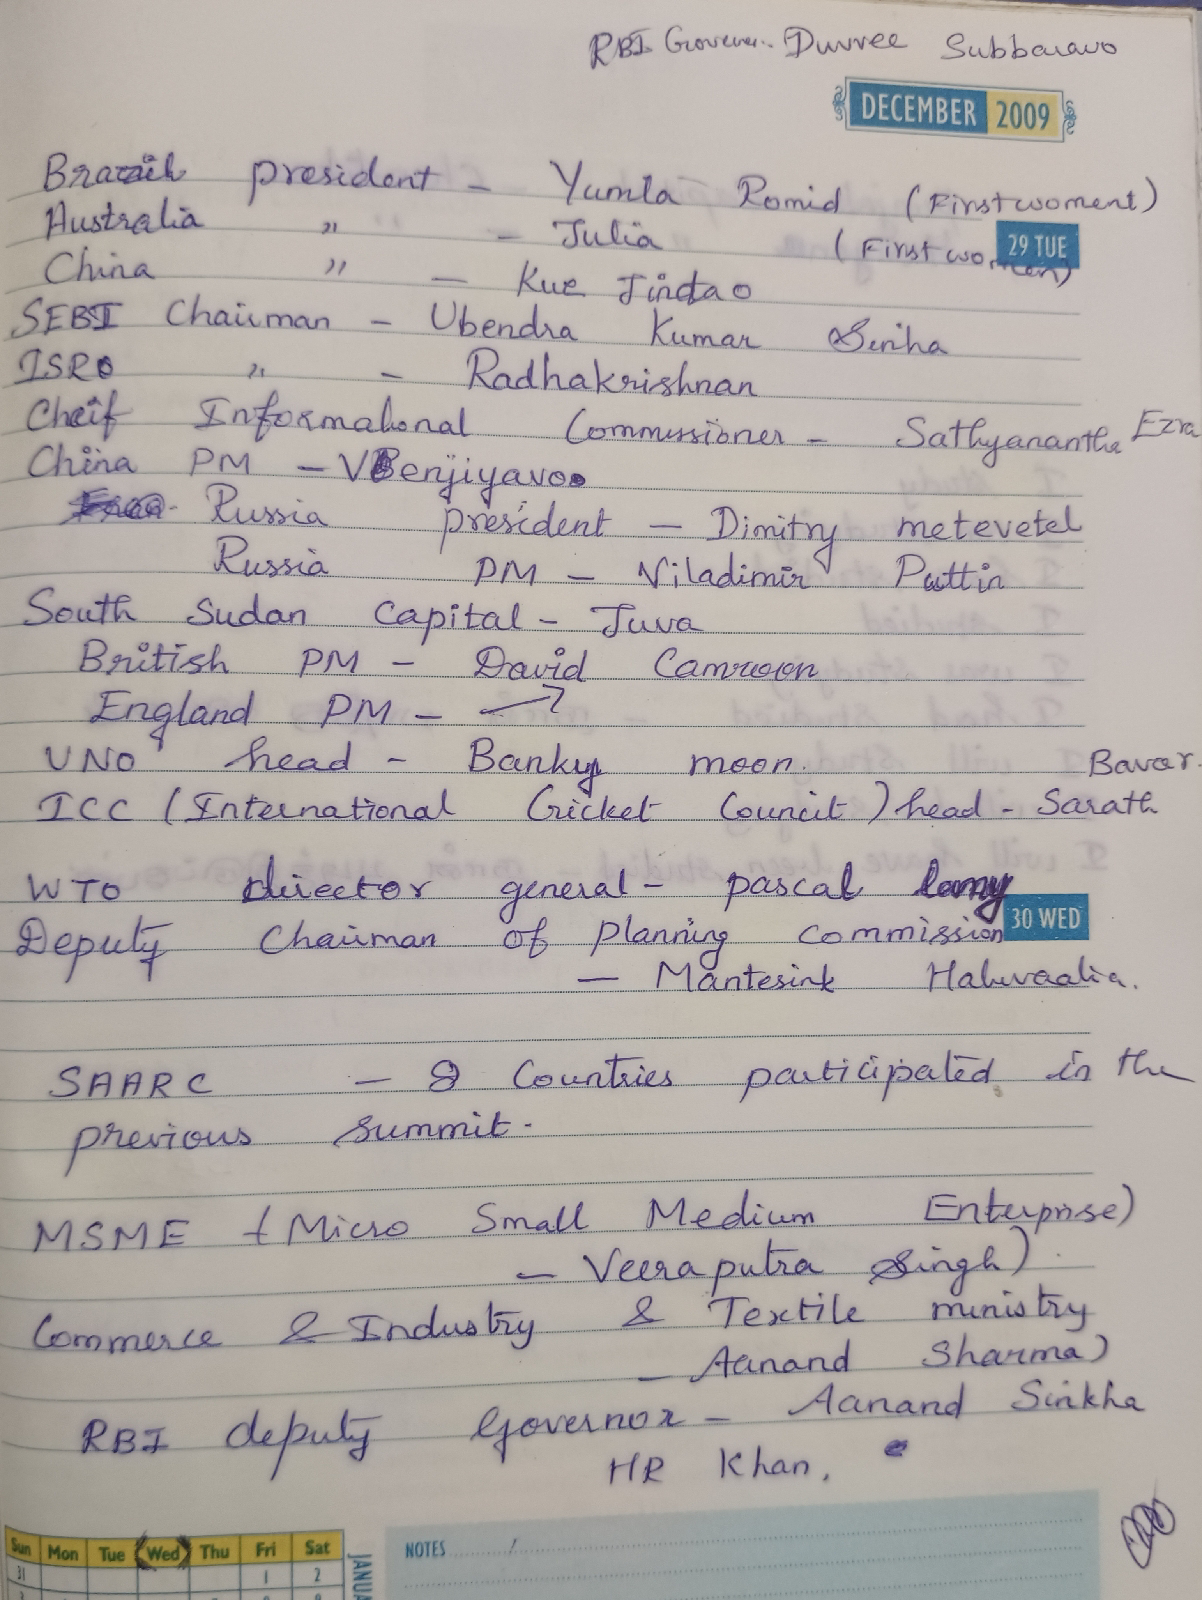 RBI Governer. Duvvee Subbaravo
DECEMBER 2009
Brazil president - Yumla Romid (First woment)
Australia " - Julia (First women)
29 TUE
China " - Kue Jindao
SEBI Chairman - Ubendra Kumar Sinha
ISRO " - Radhakrishnan
Cheif Informational Commissioner - Sathyanantha Ezra
China PM - VBenjiyavoo
Russia president - Dimitry metevetel
Russia PM - Viladimir Puttin
South Sudan Capital - Juva
British PM - David Camroon
England PM -
UNO head - Banky moon.
ICC (International Cricket Council) head - Sarath Bavar.
WTO director general - pascal lamy
Deputy Chairman of planning commission
30 WED
- Mantesink Haluvaalia.
SAARC - 8 Countries participated in the
previous summit.
MSME (Micro Small Medium Enterprise)
- Veeraputra Singh)
Commerce & Industry & Textile ministry
- Aanand Sharma)
RBI deputy Governor - Aanand Sinkha
HR Khan.
Sun Mon Tue (Wed) Thu Fri Sat
31 1 2
NOTES